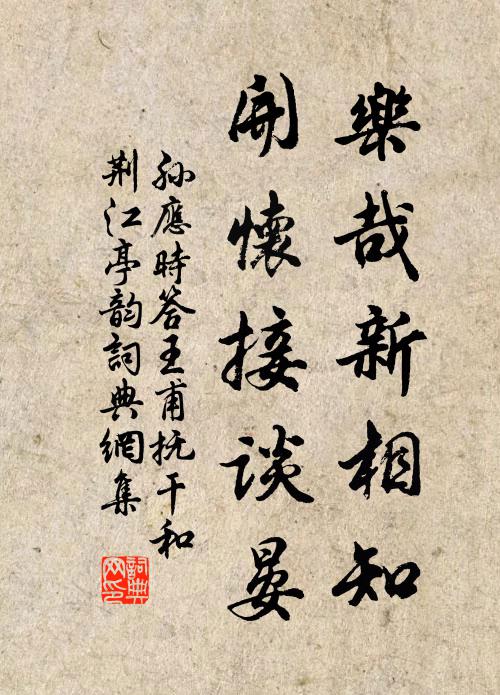 樂哉新相知
開懷接談晏
孫應時答王甫抚干和
荆江亭韵詞典網集
詞典网印